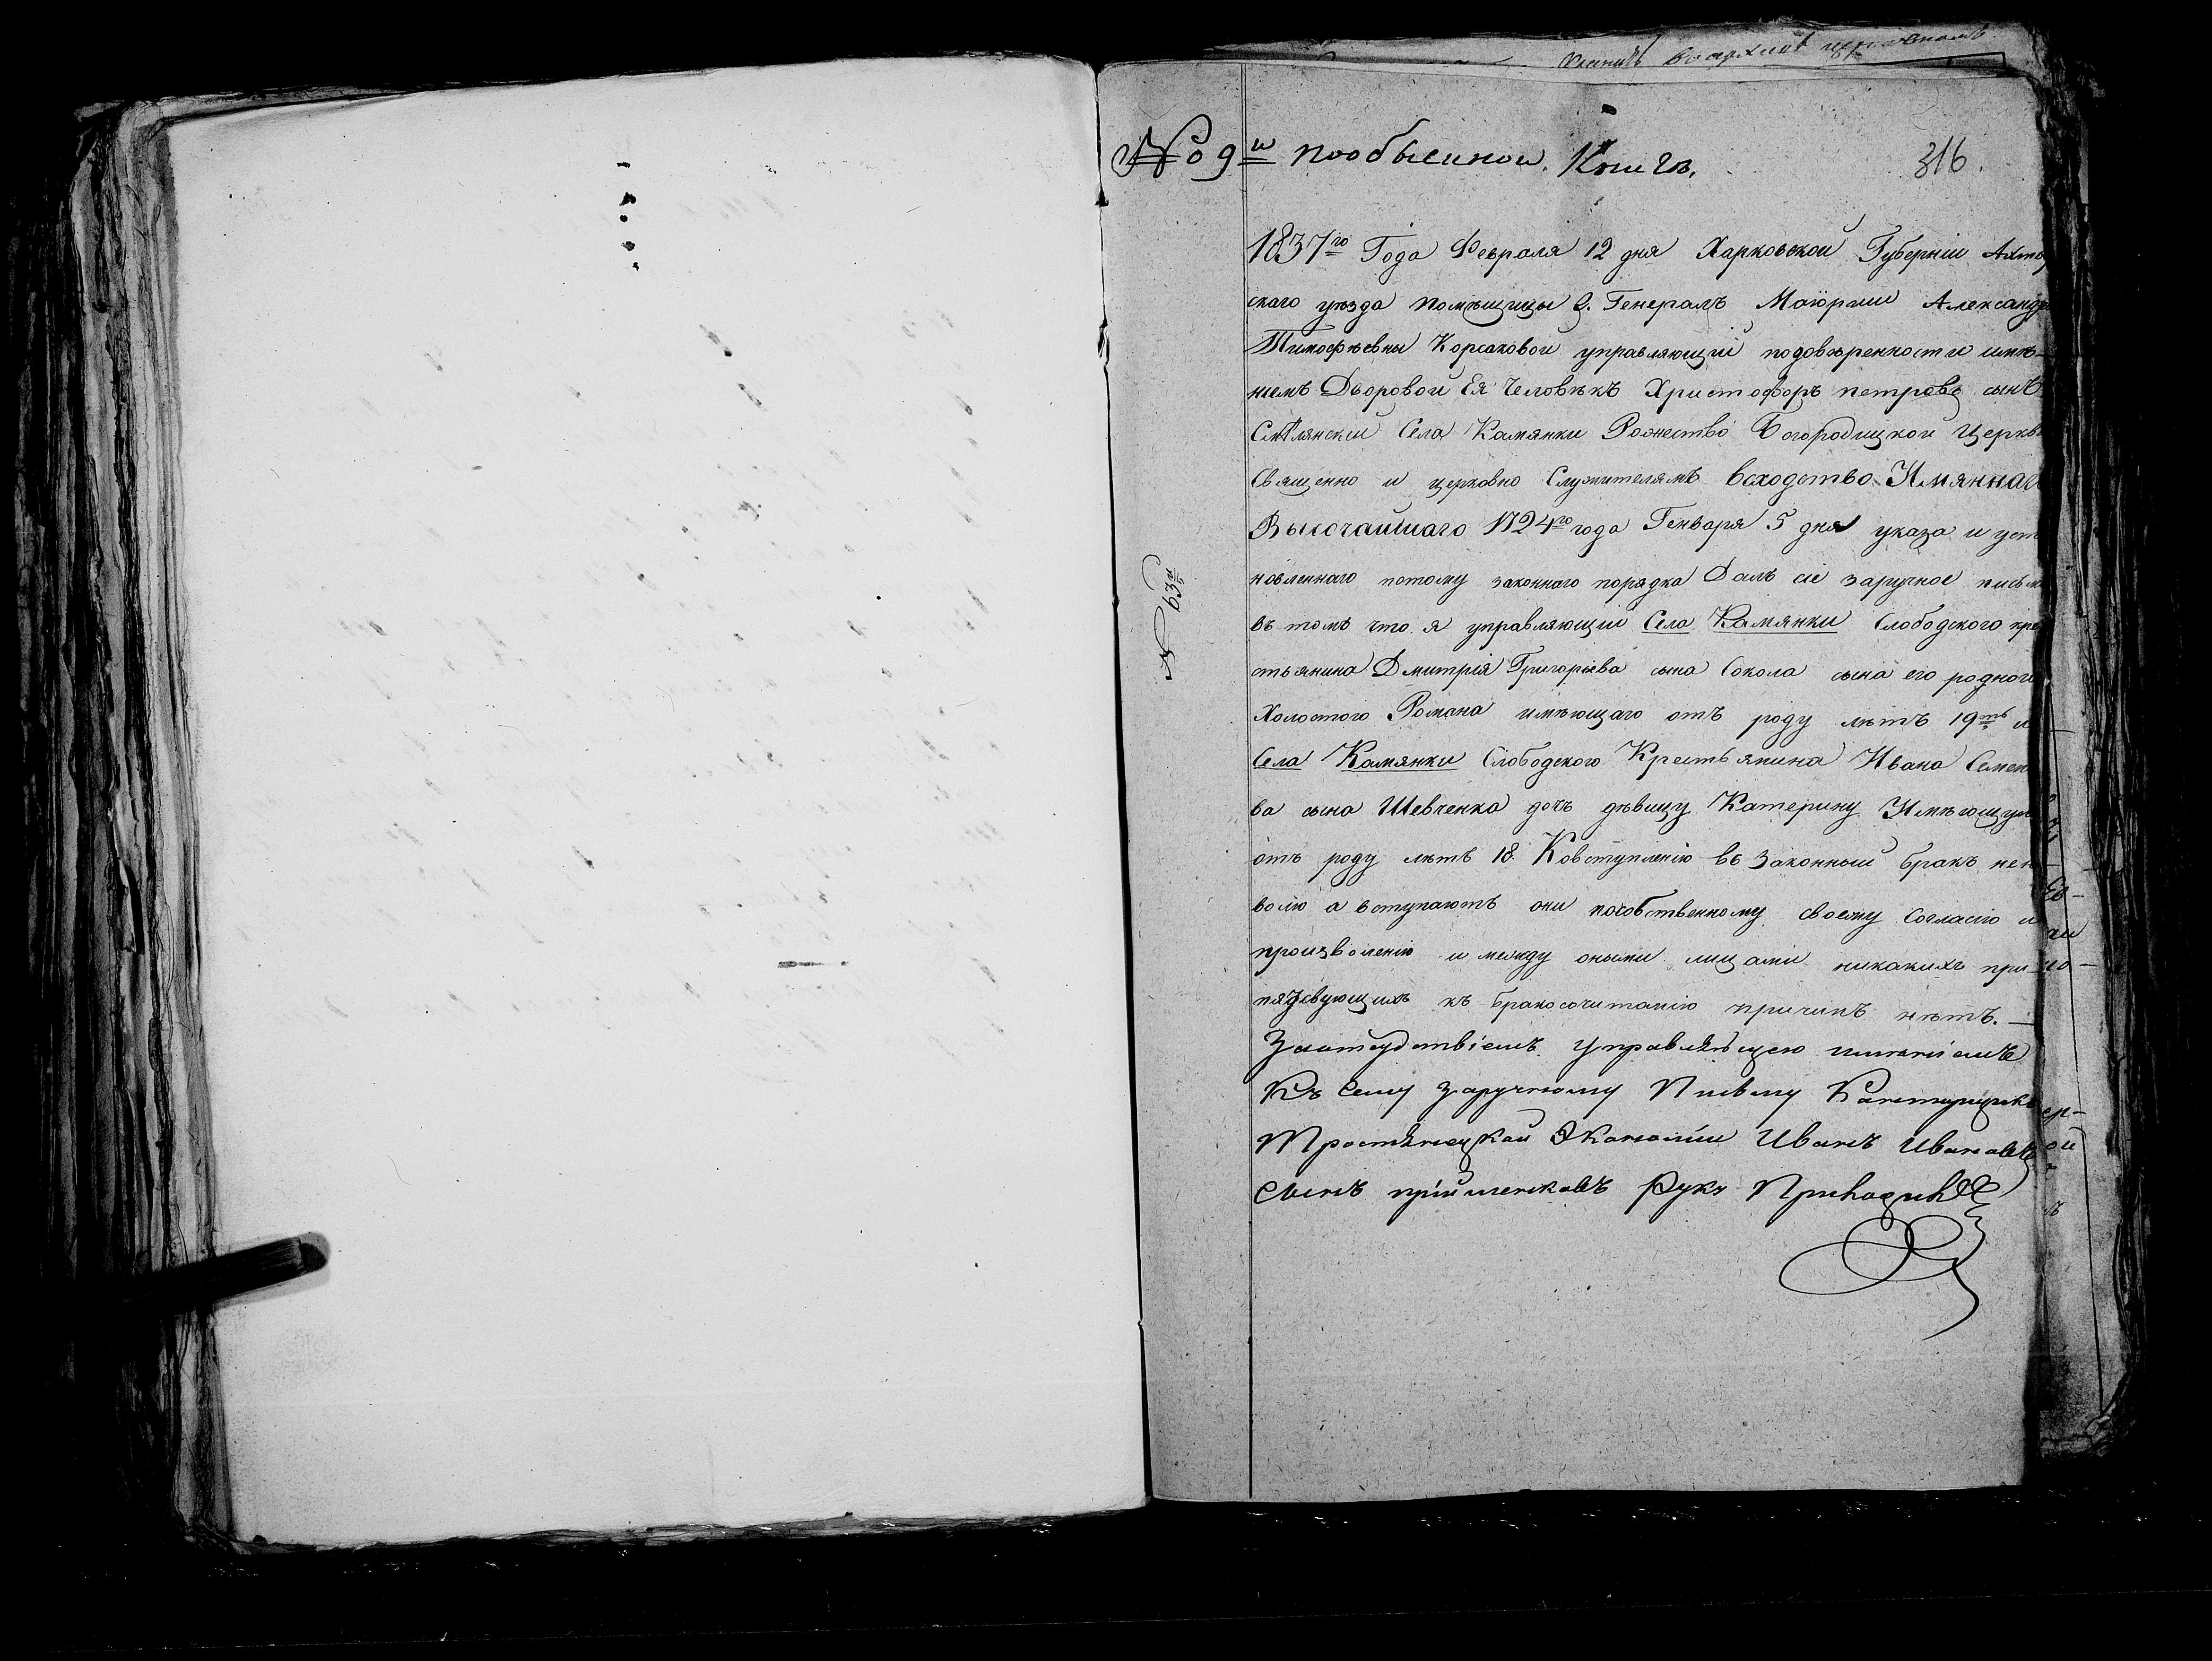 No 9й пообыскнои Книгѣ.
316.
1837го Года Февраля 12 дня Харковскои Губерніи Ахты
скаго уѣзда помѣщицы Г. Генералъ Маіорши Александр
Тимофѣевны Корсаковои управляющій подовѣренности имѣ-
ніемъ Дворовои Ея Человѣкъ Христофоръ петровъ сынъ
Села Камянки Рожество Богородицкои Церкв
Священно и церковно Служителямъ Всходство Имяннаго
Высочаишаго 1724го года Генваря 5 дня указа и уст
новленнаго потому законнаго порядка Далъ сіе заручное письм
въ томъ что я управляющіи Села Камянки Слободского кре
стьянина Дмитрія Григорьева сына Сокола сына его родного
Холостого Романа имѣющаго отъ роду лѣтъ 19ть и
Села Камянки Слободского Крестьянина Ивана Семено
ва сына Шевченка дочь дѣвицу Катерину Имѣющую
отъ роду лѣтъ 18. Ковступленію въ Законныи бракъ нен
волю а вступаютъ они пособственному своему Согласію и
произволенію и между оными лицами никакихъ при
пядсвующихъ къ бракосочитанію причинъ нѣтъ.—
Заотсудствіемъ Управляющею имѣніемъ
Къ Сему Заручному Писму
Тростянецкои Экономіи Иванъ Ивановъ
Сынъ Руку
N 63й